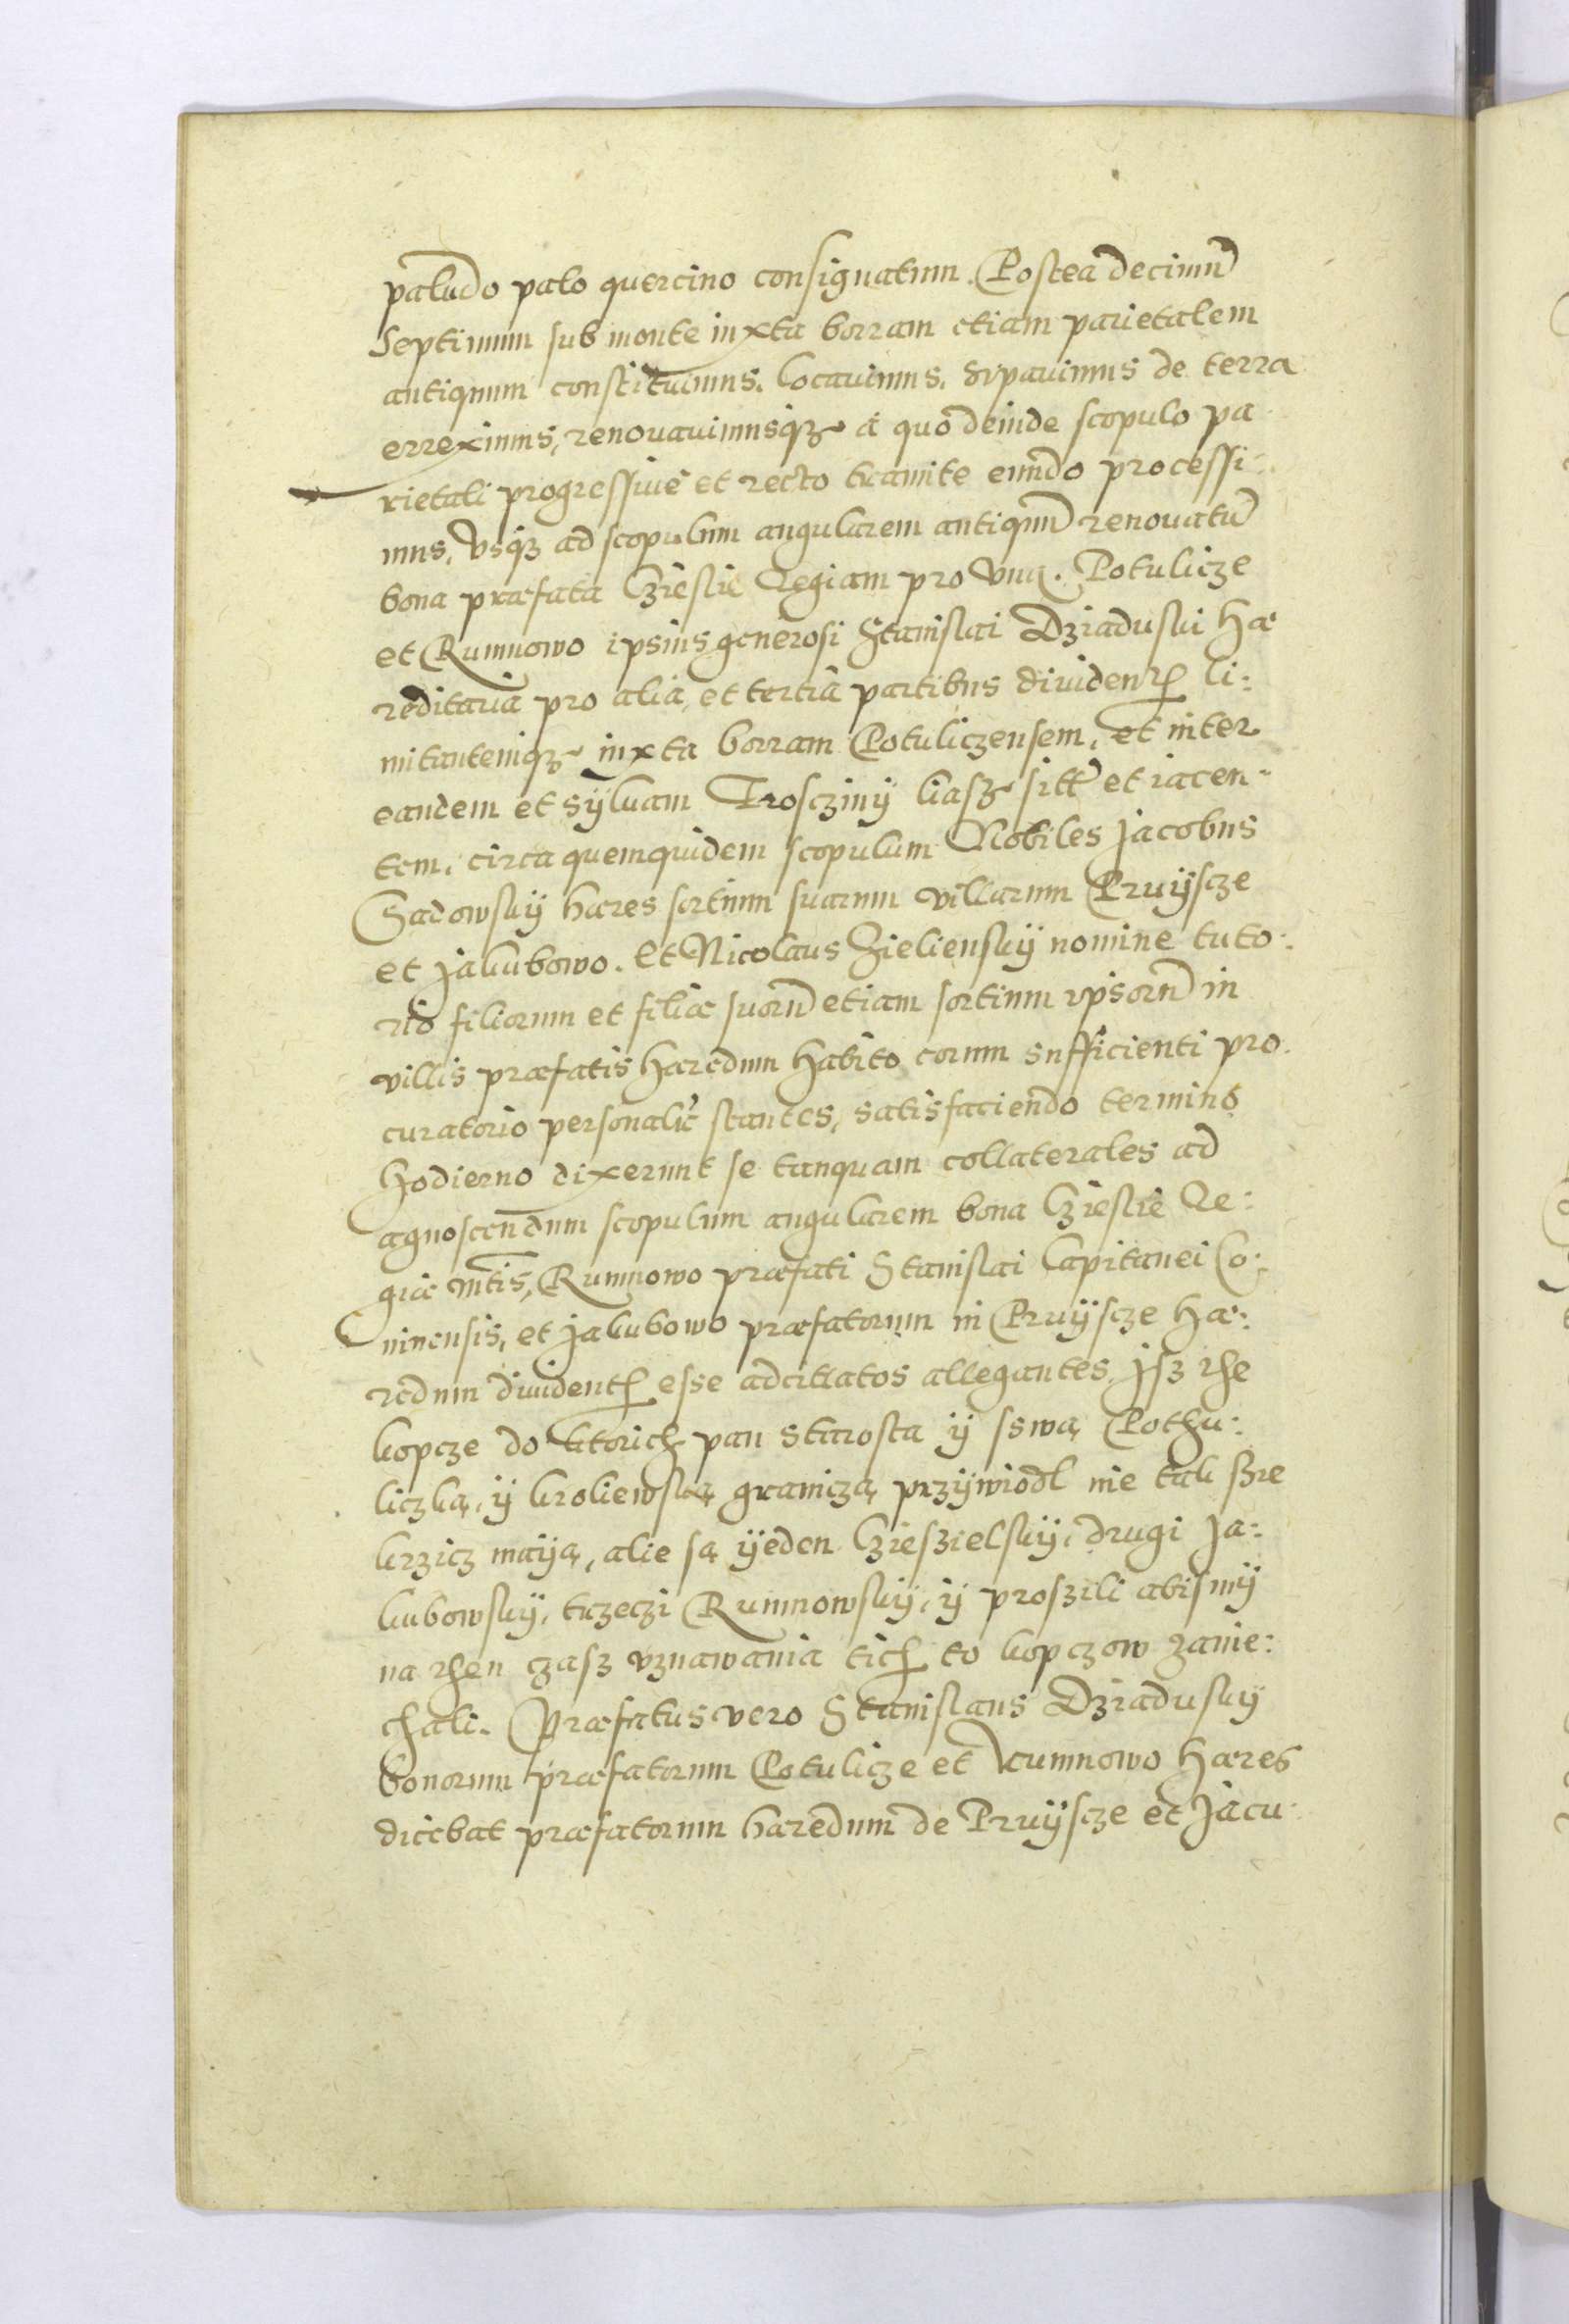 paludo palo quercino consignatum. Postea decimũ
Septimum sub monte iuxta borram etiam parietalem
antiquum constituimus. locauimus. sipauimus de terra
erreximus, renouauimusqz a quo deinde scopulo pa
rietali progressiue et recto tramite eundo processi:
mus. Vsqz ad scopulum angularem antiquũ renouatũ
bona præfata Cziesle Regiam pro vna. Potulicze
et Rumnowo ipsius generosi Stanislai Dziaduski Hæ
reditaria pro alia, et tertia partibus diuiden li:
mitantemqz iuxta borram Potuliczensem, et inter
eandem et sÿluam Trosczinÿ liasz sitũ et iacen:
tem, circa quemquidem scopulum Nobiles Jacobus
Sadowskÿ hæres sortium suarum villarum Pruÿscze
et Jakubowo. Et Nicolaus Zielienskÿ nomine tuto:
rio filiorum et filiæ suorũ etiam sortium ipsorũ in
villis præfatis hæredum habito eorum sufficienti pro
curatorio personalr̃ stantes, satisfaciendo termino
hodierno dixerunt se tanquam collaterales ad
agnoscendum scopulum angularem bona Cziesle Re:
giæ Mtis, Rumnowo præfati Stanislai Capitanei Co:
ninensis, et Jakubowo præfatorum in Pruÿscze Hæ:
redum diuident esse adcitatos allegantes, Jsz the
kopcze do ktorich pan starosta ÿ sswą Pothu:
liczką, ÿ kroliewską graniczą przÿwiodl nie tak sie
krzicz maÿą, alie są ÿeden Cziesielskÿ, drugi Ja:
kubowskÿ, trzeczi Rumnowskÿ, ÿ prosili abismÿ
na then czasz vznawania tich to kopczow zanie:
chali. Præfatus vero Stanislaus Dziaduskÿ
bonorum præfatorum Potulicze et Rumnowo hæres
dicebat præfatorum hæredum de Pruÿscze et Jacu: